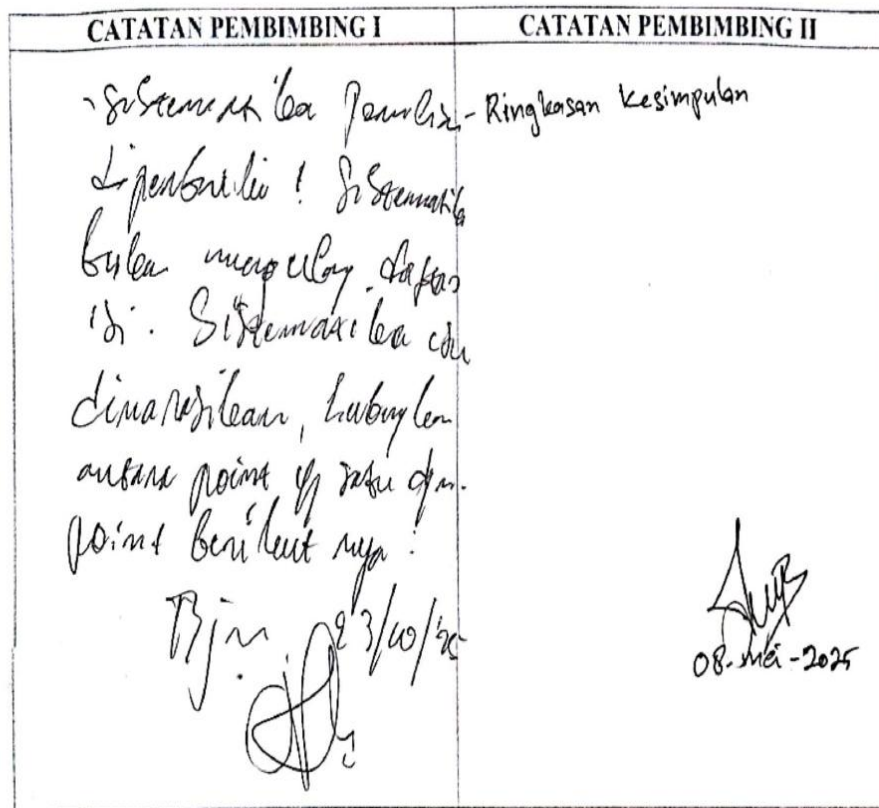 CATATAN PEMBIMBING I
- Sistematika Penulisan
diperbaiki ! Sistematika
bukan mengulang daftar
isi. Sistematika itu
dinarasikan, hubungkan
antara point yg satu dgn.
point berikut nya.
Bjm 23/10/25
CATATAN PEMBIMBING II
- Ringkasan Kesimpulan
08-Mei-2025